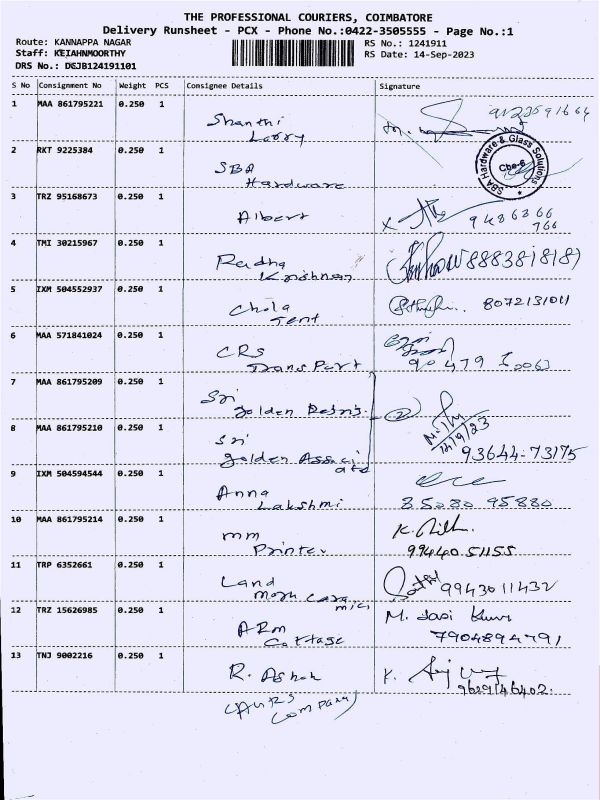 THE PROFESSIONAL COURIERS, COIMBATORE
Delivery Runsheet - PCX - Phone No.:0422-3505555 - Page No.:1
Route: KANNAPPA NAGAR RS No.: 1241911
Staff: KEIAHNMOORTHY RS Date: 14-Sep-2023
DRS No.: DSJB124191101
S No Consignment No Weight PCS Consignee Details Signature
1 MAA 861795221 0.250 1
Shanthi
Lorry
2 RKT 9225384 0.250 1
SBA
Hardware
SBA Hardware & Glass Solutions
Cbe-6
3 TRZ 95168673 0.250 1
Albert
9486366
766
4 TMI 30215967 0.250 1
Radha
Krishnan
8883818189
5 IXM 504552937 0.250 1
Chola
Tent
8072131011
6 MAA 571841024 0.250 1
CRS
Transport
7 MAA 861795209 0.250 1
Sri
golden
8 MAA 861795210 0.250 1
Sri
golden Associ
ate
14/9/23
93644-73175
9 IXM 504594544 0.250 1
Anna
Lakshmi
85080 95880
10 MAA 861795214 0.250 1
mm
Printer
99440 51155
11 TRP 6352661 0.250 1
Land
mark cera
mics
9943011432
12 TRZ 15626985 0.250 1
ARM
Cottage
M.
7904894791
13 TNJ 9002216 0.250 1
R. Ashok
K.
9629146402
company)